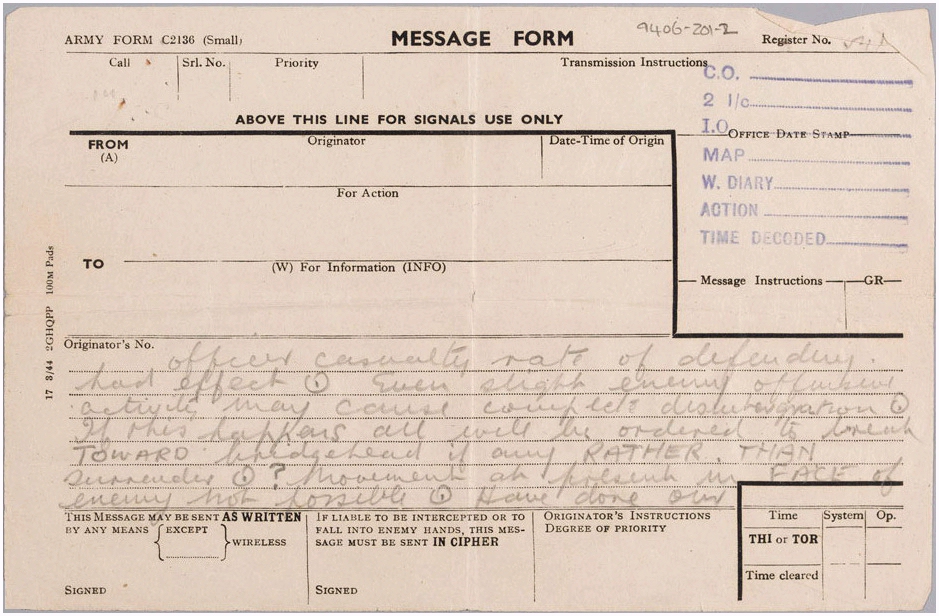 ARMY FORM C2136 (Small)
MESSAGE FORM
9406-201-2
Register No.
Call
Srl. No.
Priority
Transmission Instructions
C.O.
2 I/c
I.O
OFFICE DATE STAMP
MAP
W. DIARY
ACTION
TIME DECODED
ABOVE THIS LINE FOR SIGNALS USE ONLY
FROM
(A)
Originator
Date-Time of Origin
For Action
TO
(W) For Information (INFO)
Message Instructions
GR
17 8/44 2GHQPP 100M Pads
Originator's No.
officer casualty rate of defending.
had effect ⊙ Even slight enemy offensive
activity may cause complete disintegration ⊙
If this happens all will be ordered to break
TOWARD bridgehead if any RATHER THAN
surrender ⊙ ? Movement at present in FACE of
enemy not possible ⊙ Have done our
THIS MESSAGE MAY BE SENT AS WRITTEN
BY ANY MEANS { EXCEPT } WIRELESS
SIGNED
IF LIABLE TO BE INTERCEPTED OR TO
FALL INTO ENEMY HANDS, THIS MES-
SAGE MUST BE SENT IN CIPHER
SIGNED
ORIGINATOR'S INSTRUCTIONS
DEGREE OF PRIORITY
Time
System
Op.
THI or TOR
Time cleared